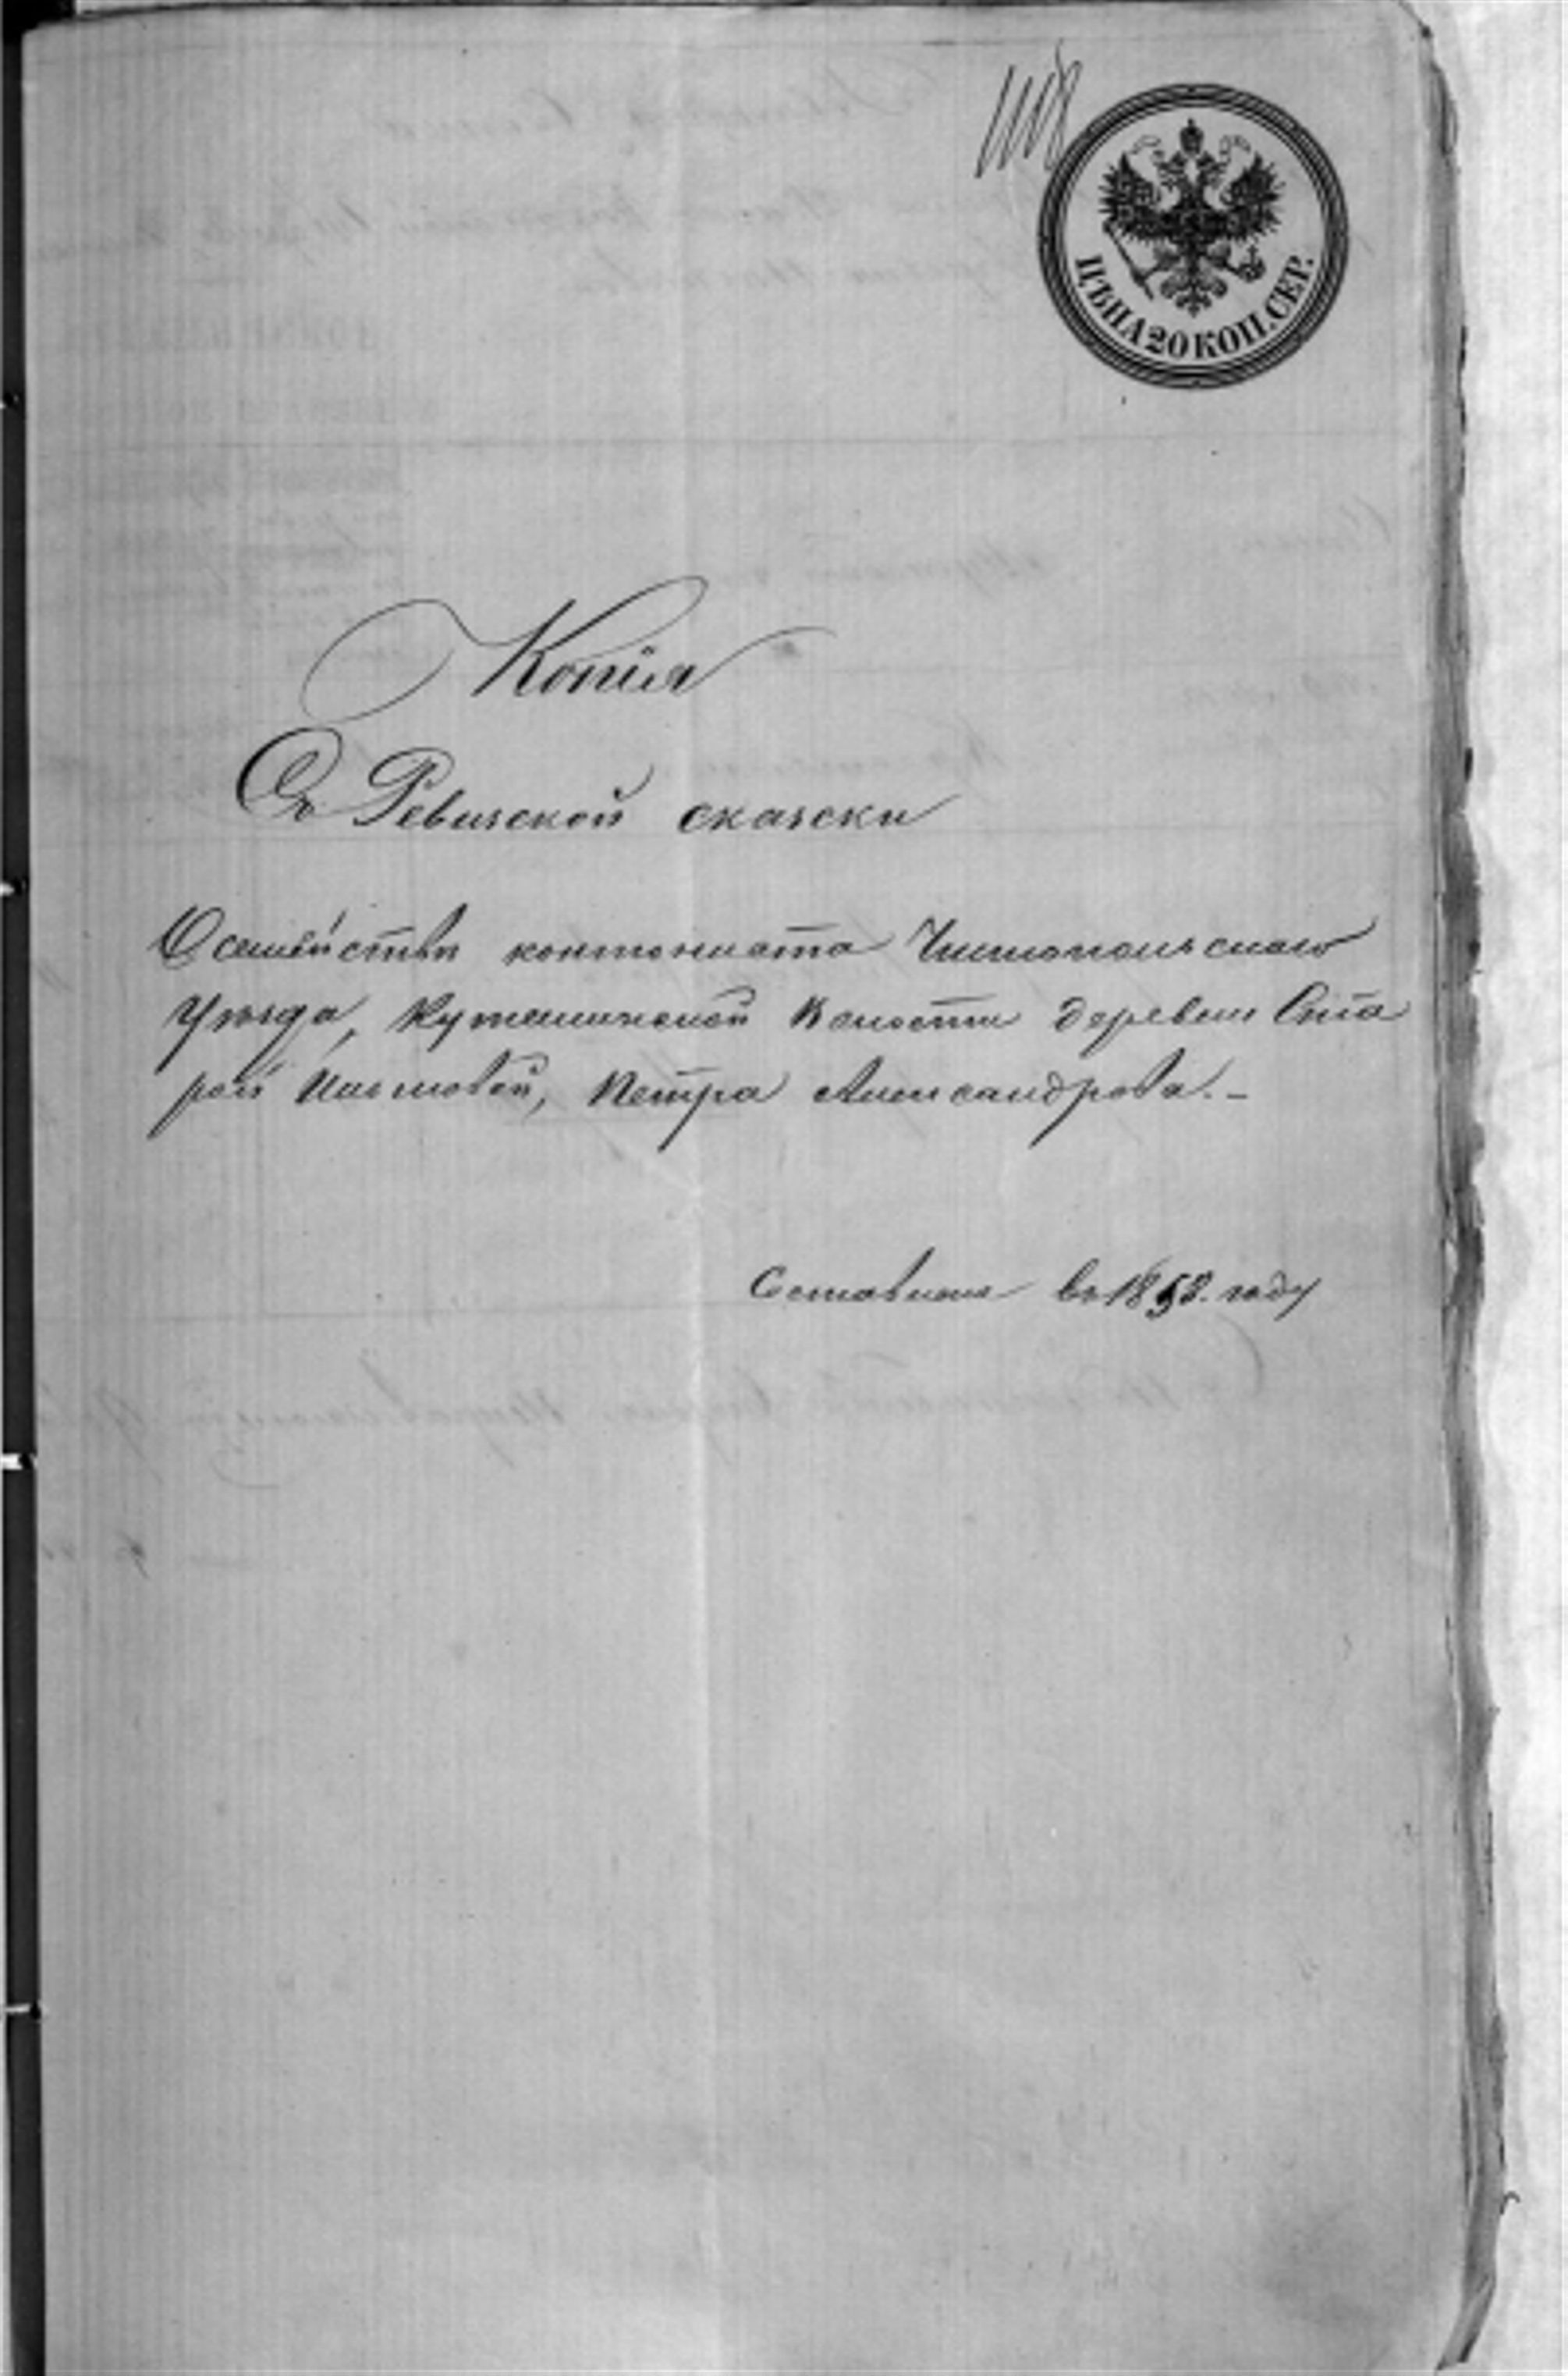 ЦѢНА 20 КОП. СЕР.
Копія
Съ Ревизской сказки
О семействѣ кантониста Чистопольскаго
Уѣзда, Кутеминской Волости деревни Ста
рой Иштовой, Петра Александрова. –
Составлена въ 1858. году